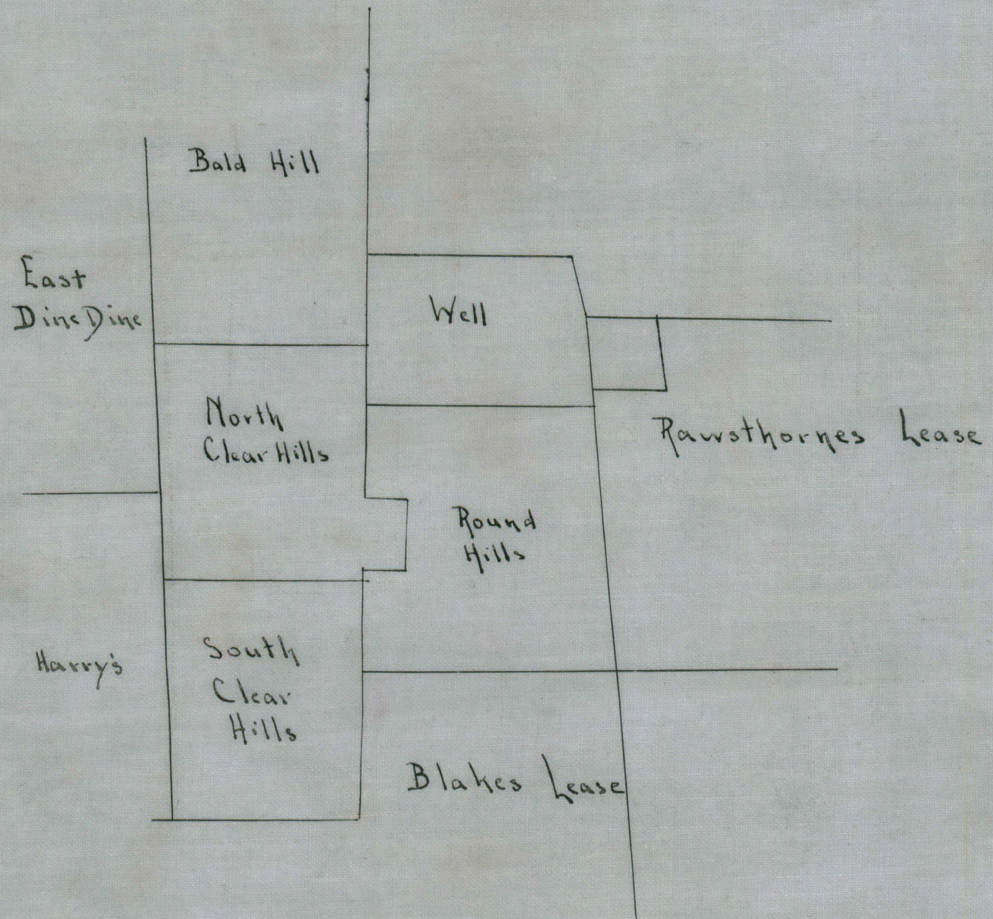 Bald Hill
East
Dine Dine
Well
North
Clear Hills
Rawsthornes Lease
Round
Hills
Harry's
South
Clear
Hills
Blakes Lease